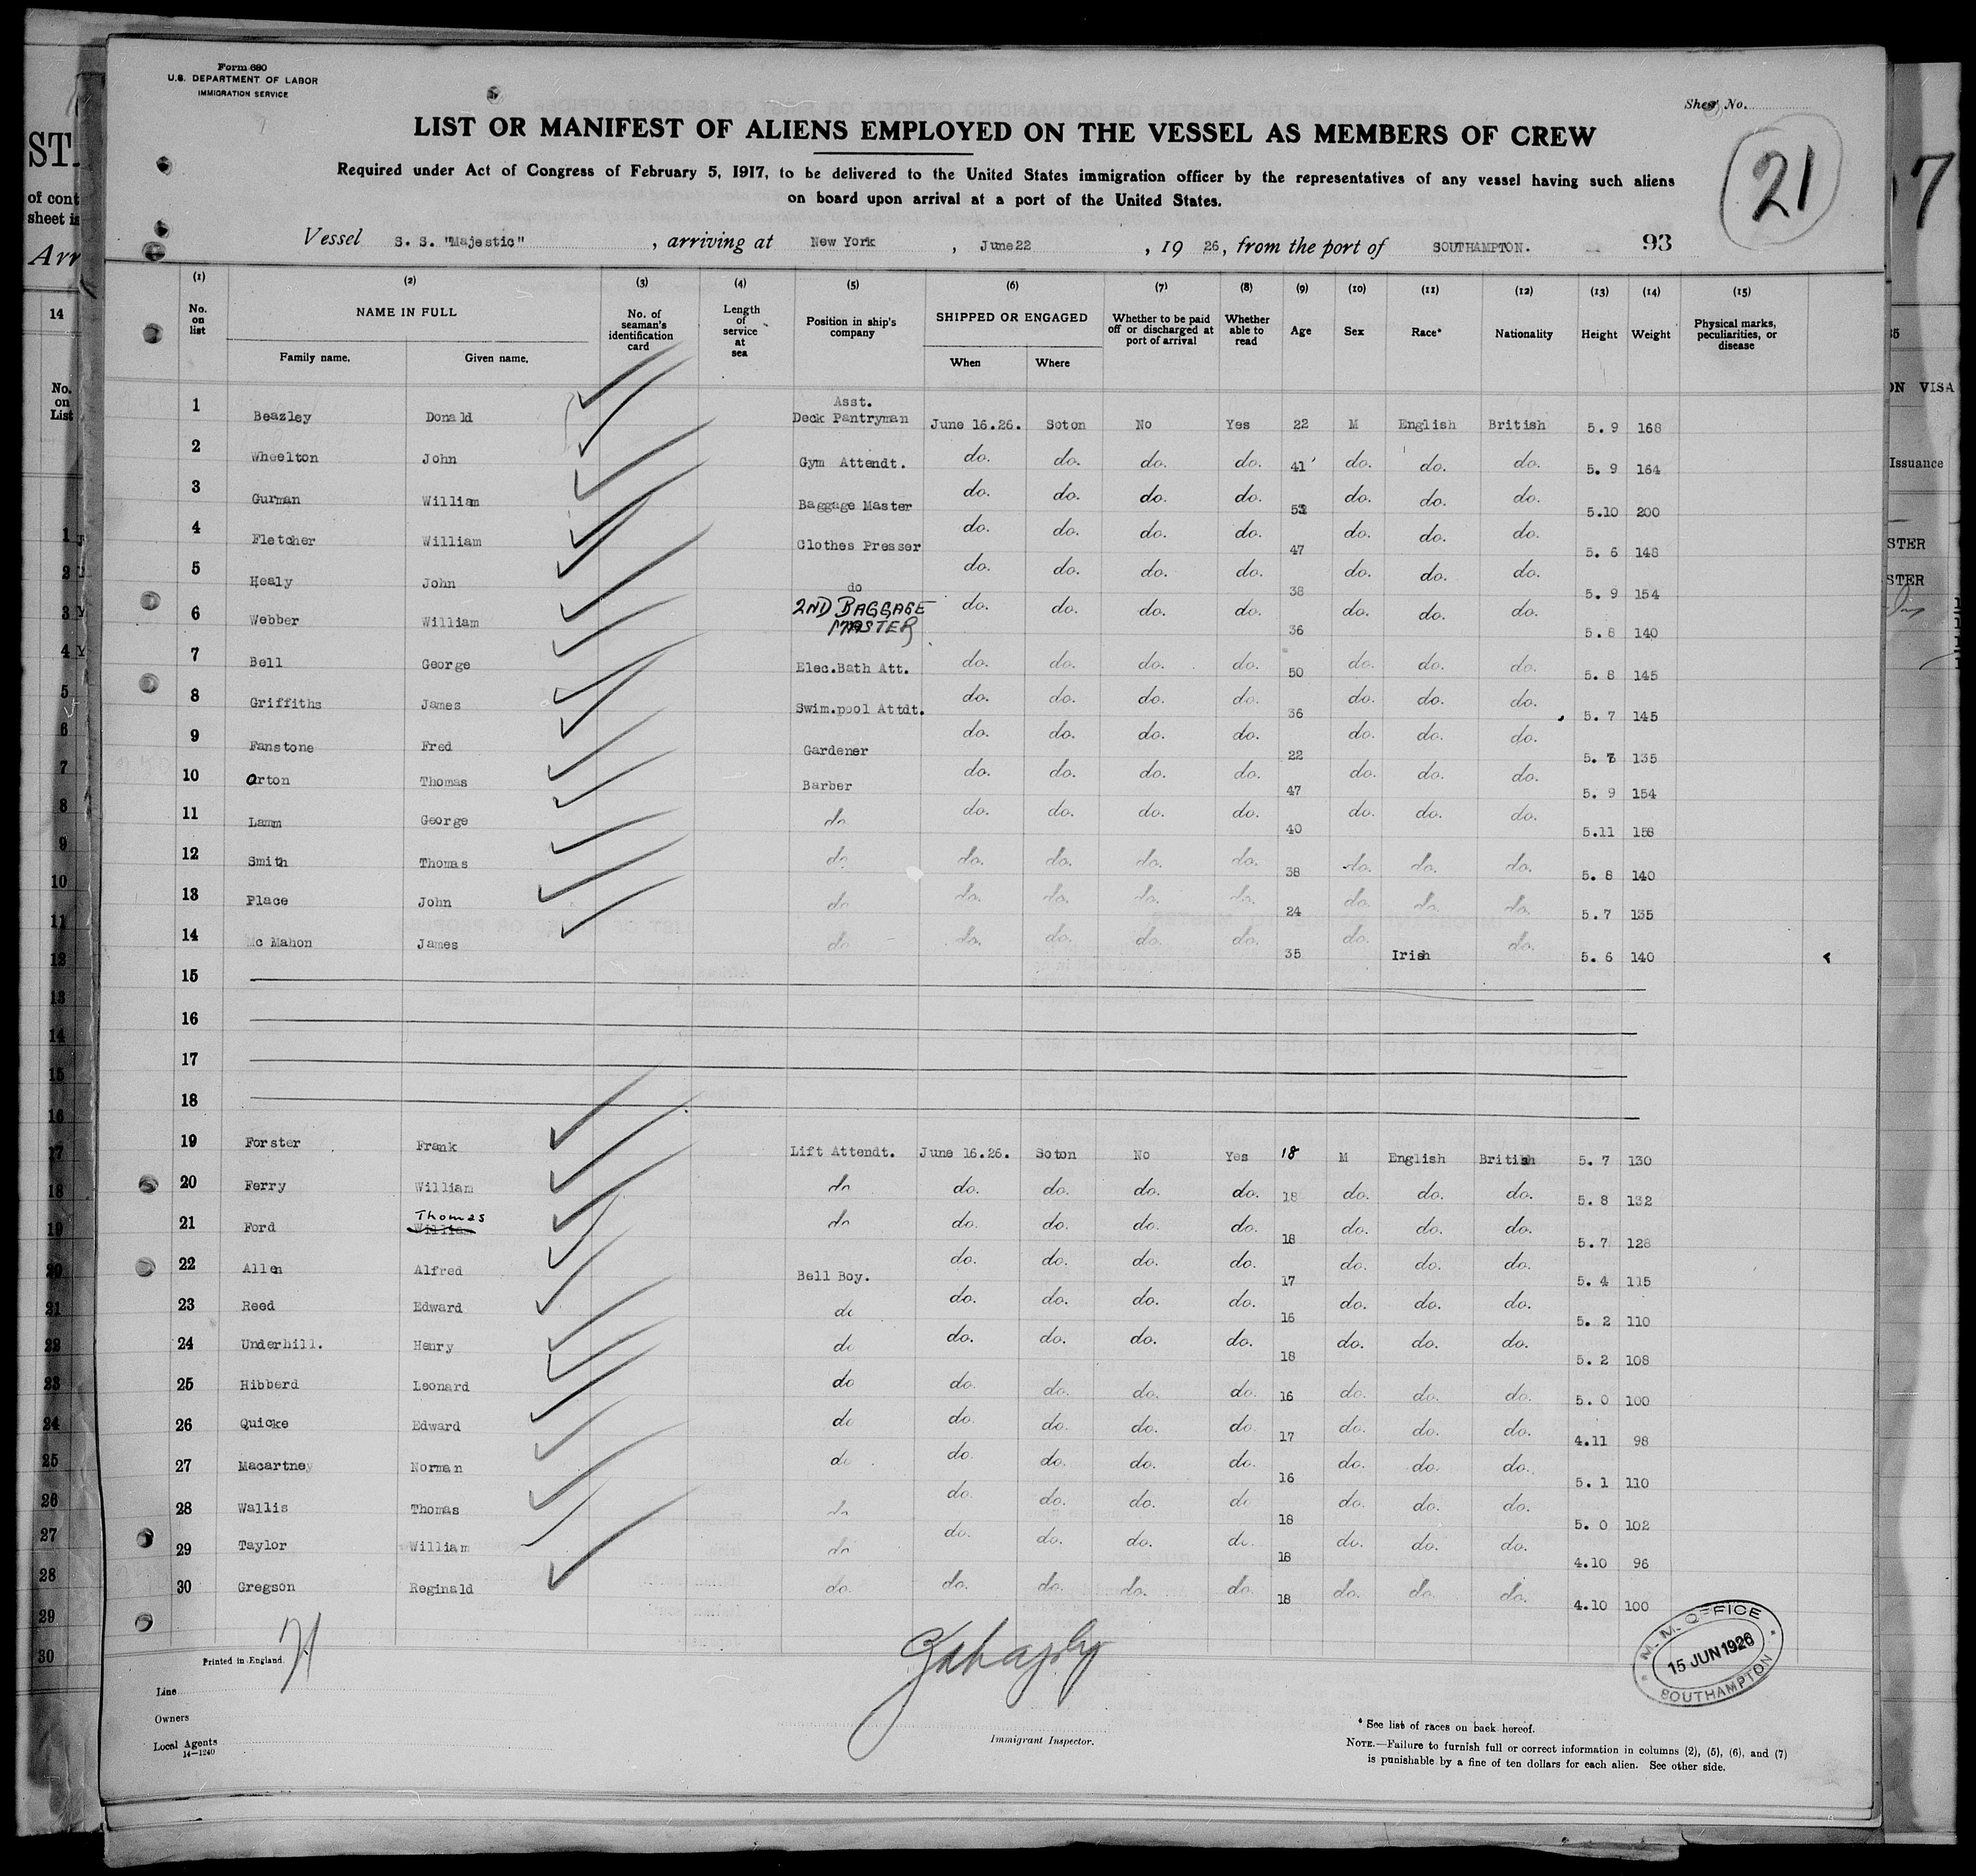 Form 680
U.S. DEPARTMENT OF LABOR
IMMIGRATION SERVICE
Sheet No.
21
LIST OR MANIFEST OF ALIENS EMPLOYED ON THE VESSEL AS MEMBERS OF CREW
Required under Act of Congress of February 5, 1917, to be delivered to the United States immigration officer by the representatives of any vessel having such aliens
on board upon arrival at a port of the United States.
Vessel S. S. "Majestic" , arriving at New York , June 22 , 19 26, from the port of SOUTHAMPTON. 93
(1) (2) (3) (4) (5) (6) (7) (8) (9) (10) (11) (12) (13) (14) (15)
No. on list NAME IN FULL Family name. Given name. No. of seaman's identification card Length of service at sea Position in ship's company SHIPPED OR ENGAGED When Where Whether to be paid off or discharged at port of arrival Whether able to read Age Sex Race* Nationality Height Weight Physical marks, peculiarities, or disease
1 Beazley Donald Asst. Deck Pantryman June 16.26. Soton No Yes 22 M English British 5. 9 168
2 Wheelton John Gym Attendt. do. do. do. do. 41 do. do. do. 5. 9 164
3 Gurman William Baggage Master do. do. do. do. do. do. do. 5.10 200
4 Fletcher William Clothes Presser do. do. do. do. 47 do. do. do. 5. 6 148
5 Healy John do do. do. do. do. 38 do. do. do. 5. 9 154
6 Webber William 2ND BAGGAGE MASTER do. do. do. do. 36 do. do. do. 5. 8 140
7 Bell George Elec.Bath Att. do. do. do. do. 50 do. do. do. 5. 8 145
8 Griffiths James Swim.pool Attdt. do. do. do. do. 36 do. do. do. 5. 7 145
9 Fanstone Fred Gardener do. do. do. do. 22 do. do. do. 5. 135
10 Orton Thomas Barber do. do. do. do. 47 do. do. do. 5. 9 154
11 Lamm George do do. do. do. do. 40 do. do. do. 5.11 158
12 Smith Thomas do do. do. do. do. 38 do. do. do. 5. 8 140
13 Place John do do. do. do. do. 24 do. do. do. 5. 7 135
14 Mc Mahon James do do. do. do. do. 35 do. Irish do. 5. 6 140
15
16
17
18
19 Forster Frank Lift Attendt. June 16.26. Soton No Yes 18 M English British 5. 7 130
20 Ferry William do do. do. do. do. 18 do. do. do. 5. 8 132
21 Ford William Thomas do do. do. do. do. 18 do. do. do. 5. 7 128
22 Allen Alfred Bell Boy. do. do. do. do. 17 do. do. do. 5. 4 115
23 Reed Edward do do. do. do. do. 16 do. do. do. 5. 2 110
24 Underhill. Henry do do. do. do. do. 18 do. do. do. 5. 2 108
25 Hibberd Leonard do do. do. do. do. 16 do. do. do. 5. 0 100
26 Quicke Edward do do. do. do. do 17 do. do. do. 4.11 98
27 Macartney Norman do do. do. do. do. 16 do. do. do. 5. 1 110
28 Wallis Thomas do do. do. do. do 18 do. do. do. 5. 0 102
29 Taylor William do do. do. do. do. 18 do. do. do. 4.10 96
30 Gregson Reginald do. do. do. do. do. 18 do. do. do. 4.10 100
Printed in England.
Line
Owners
Local Agents
14—1240
Immigrant Inspector.
M. M. OFFICE
15 JUN 1926
SOUTHAMPTON
* See list of races on back hereof.
NOTE.—Failure to furnish full or correct information in columns (2), (5), (6), and (7)
is punishable by a fine of ten dollars for each alien. See other side.